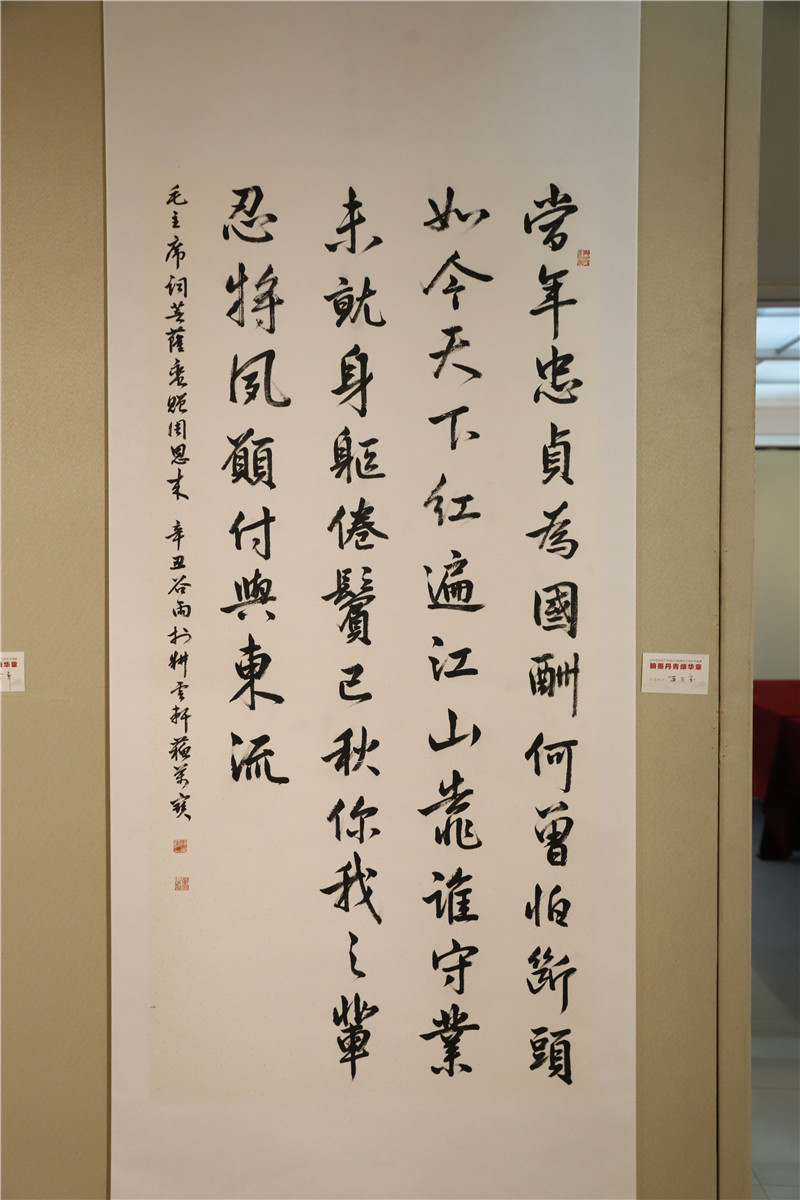 當年忠貞為國酬何曾怕斷頭
如今天下紅遍江山靠誰守業
未就身軀倦鬢已秋你我之輩
忍將夙願付與東流
毛主席詞菩薩蠻贈周恩来 辛丑谷雨於耕雲軒蘇萬寶
翰墨丹青颂华章
华章